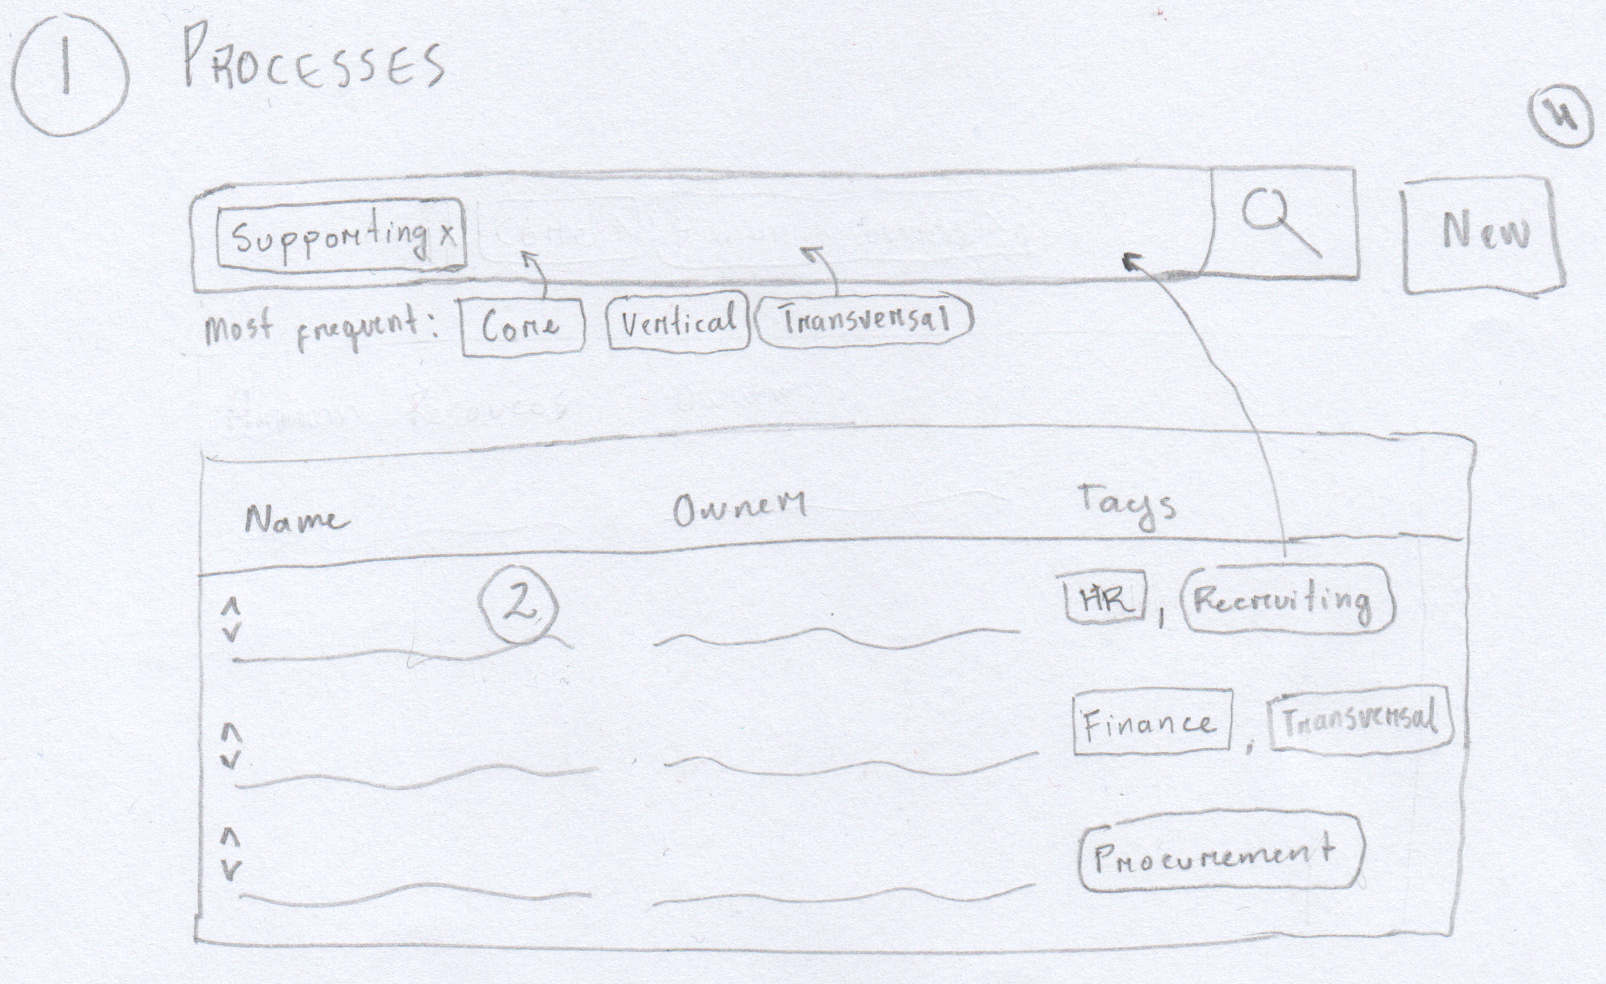 1 PROCESSES
4
Supporting x
New
Most frequent: Core Vertical Transversal
Human Resources
Name Owner Tags
2 HR, Recruiting
Finance, Transversal
Procurement